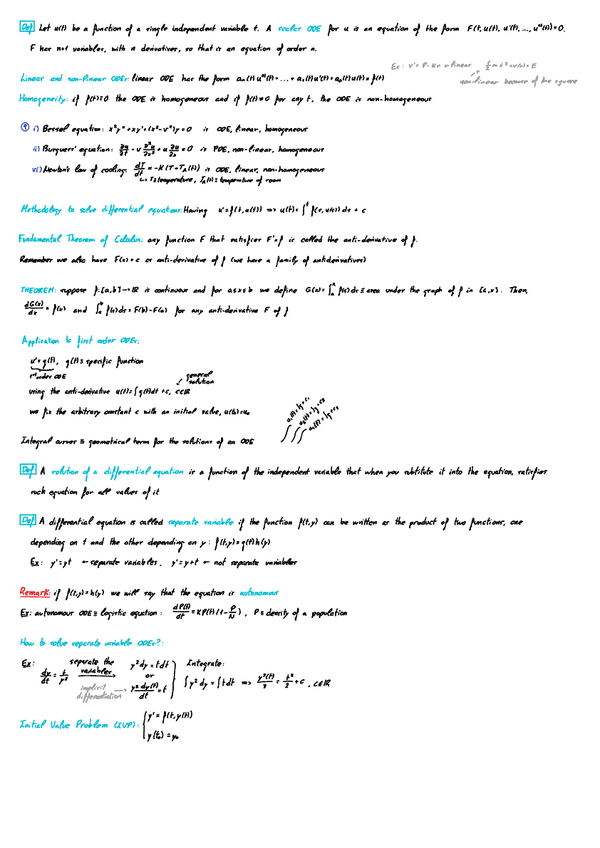 Def Let u(t) be a function of a single independent variable t. A scalar ODE for u is an equation of the form F(t, u(t), u'(t), ..., uⁿ(t)) = 0.
F has n+1 variables, with n derivatives, so that is an equation of order n.
Linear and non-linear ODEs: linear ODE has the form aₙ(t) uⁿ(t) + ... + a₁(t) u'(t) + a₀(t) u(t) = f(t)
non-linear because of the square
Homogeneity: if f(t) ≡ 0 the ODE is homogeneous and if f(t) ≠ 0 for any t, the ODE is non-homogeneous
i) Bessel equation: x²y'' + xy' + (x² - v²)y = 0 is ODE, linear, homogeneous
ii) Burguers' equation: ∂u/∂t - v ∂²u/∂x² + u ∂u/∂x = 0 is PDE, non-linear, homogeneous
vi) Newton's law of cooling: dT/dt = -K(T - Tₐ(t)) is ODE, linear, non-homogeneous
↳ T ≡ temperature, Tₐ(t) ≡ temperature of room
Methodology to solve differential equations: Having u' = f(t, u(t)) ⟹ u(t) = ∫ᵗ f(s, u(s)) ds + c
Fundamental Theorem of Calculus: any function F that satisfies F' = f is called the anti-derivative of f.
Remember we also have F(x) + c as anti-derivative of f (we have a family of antiderivatives)
THEOREM: suppose f: [a,b] → ℝ is continuous and for a ≤ x ≤ b we define G(x) = ∫ₐˣ f(s) ds ≡ area under the graph of f in [a,x]. Then,
dG(x)/dx = f(x) and ∫ₐᵇ f(s) ds = F(b) - F(a) for any anti-derivative F of f
Application to first order ODEs:
u' = g(t), g(t) ≡ specific function
1st order ODE
general solution
using the anti-derivative u(t) = ∫ g(t) dt + c, c∈ℝ
we fix the arbitrary constant c with an initial value, u(t₀) = u₀
Integral curves ≡ geometrical term for the solutions of an ODE
Def A solution of a differential equation is a function of the independent variable that when you subtitute it into the equation, satisfies
such equation for all values of it
Def A differential equation is called separate variable if the function f(t,y) can be written as the product of two functions, one
depending on t and the other depending on y: f(t,y) = g(t) h(y)
Ex: y' = yt ← separate variables, y' = y + t ← not separate variables
Remark: if f(t,y) = h(y) we will say that the equation is autonomous
Ex: autonomous ODE ≡ logistic equation: dP(t)/dt = KP(t)(1 - P/N), P ≡ density of a population
How to solve separate variable ODEs?:
Ex: dy/dt = t/y² separate the variables → y² dy = t dt
or
implicit differentiation → y² dy(t)/dt = t
Integrate:
∫ y² dy = ∫ t dt ⟹ y³(t)/3 = t²/2 + c, c∈ℝ
Initial Value Problem (IVP): { y' = f(t, y(t))
y(t₀) = y₀